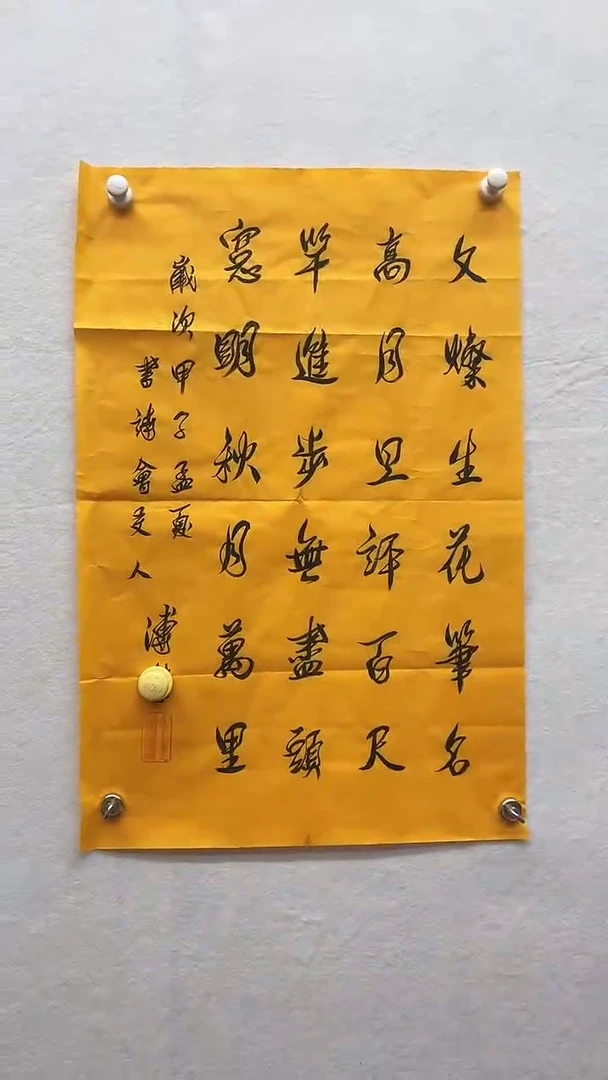 文燦生花筆名
高月旦評百尺
竿進步無盡頭
窓明秋月萬里
歲次甲子孟夏
書會人
溥